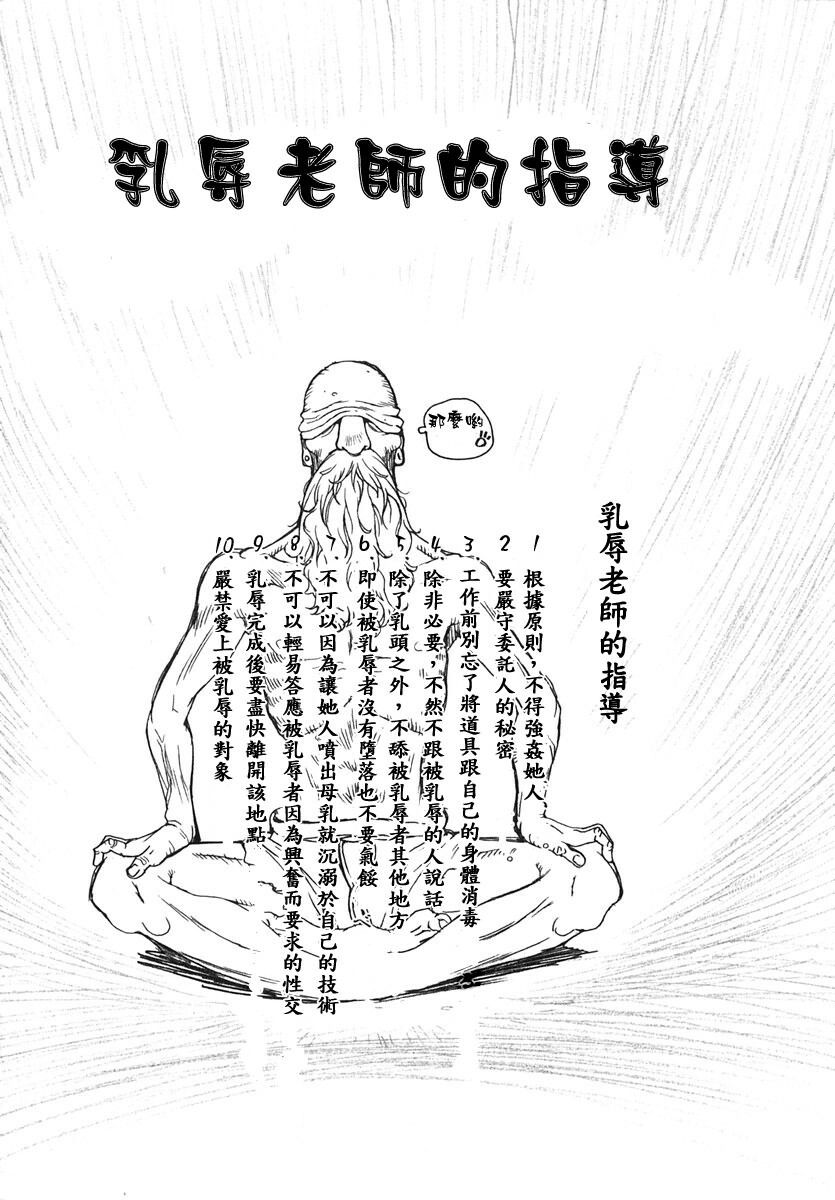 乳辱老師的指導
那麼喲
乳辱老師的指導
1 根據原則，不得強姦她人
2 要嚴守委託人的秘密
3 工作前別忘了將道具跟自己的身體消毒
4 除非必要，不然不跟被乳辱的人說話
5 除了乳頭之外，不舔被乳辱者其他地方
6 即使被乳辱者沒有墮落也不要氣餒
7 不可以因為讓她人噴出母乳就沉溺於自己的技術
8 不可以輕易答應被乳辱者因為興奮而要求的性交
9 乳辱完成後要盡快離開該地點
10 嚴禁愛上被乳辱的對象